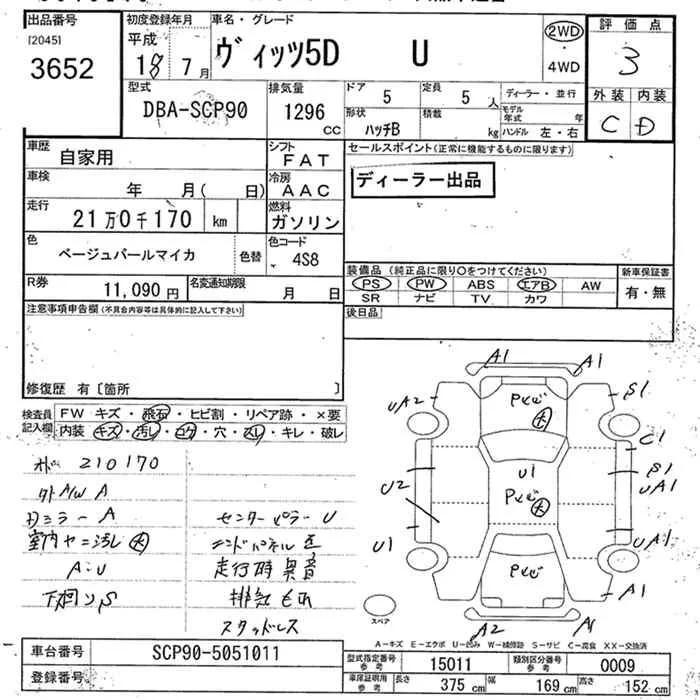 出品番号
[2045]
3652
初度登録年月
平成
18 7月
車名・グレード
ヴィッツ5D U
2WD
・
4WD
評価点
3
外装 内装
C D
型式
DBA-SCP90
排気量
1296
CC
ドア
5
定員
5人
ディーラー・並行
形状
ハッチB
積載
kg
モデル年式 年
ハンドル 左・右
車歴
自家用
シフト
FAT
車検
年 月( 日)
冷房
AAC
走行
21万0千170 km
燃料
ガソリン
色
ベージュパールマイカ
色替
色コード
4S8
R券
11,090円
名変通知期限
月 日
セールスポイント(正常に機能するものに限ります)
ディーラー出品
装備品(純正品に限り○をつけてください)
PS PW ABS エアB AW
SR ナビ TV カワ
新車保証書
有・無
後日品
注意事項申告欄(不具合内容等は具体的に記入して下さい)
修復歴 有〔箇所 〕
検査員記入欄
FW キズ・飛石・ヒビ割・リペア跡・×要
内装 キズ・汚レ・コゲ・穴・スレ・キレ・破レ
210170
外A/W A
ミラーA
室内ヤニ汚レ大
A・U
下回りS
センターピラーU
走行時異音
排気もれ
スタッドレス
A1 A1
UA2 S1
C1
S1
UA1
U1
U2
U1 UA1
A1
A2 A1
スペア
A-キズ E-エクボ U-凹み W-補修跡 S-サビ C-腐食 XX-交換済
車台番号
SCP90-5051011
登録番号
型式指定番号
参考
15011
類別区分番号
参考
0009
車庫証明用
参考
長さ 375cm 幅 169cm 高さ 152cm